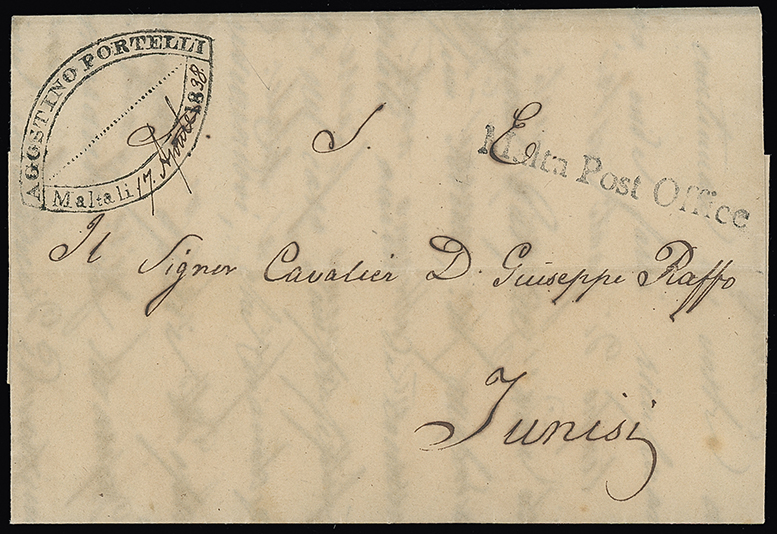 AGOSTINO PORTELLI
Malta li 17. Agosto 1838.
S. E.
Malta Post Office
Il Signor Cavalier D. Giuseppe Raffo
Tunisi